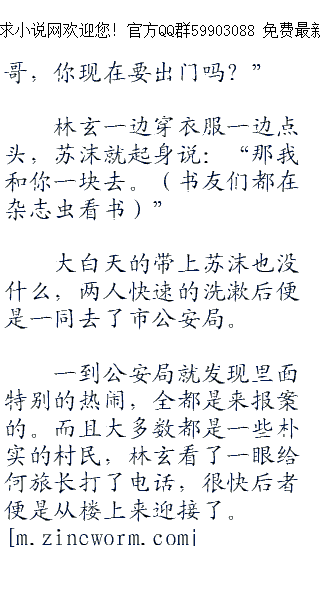 求小说网欢迎您! 官方QQ群59903088 免费最新
哥，你现在要出门吗？”
林玄一边穿衣服一边点
头，苏沫就起身说：“那我
和你一块去。（书友们都在
杂志虫看书）”
大白天的带上苏沫也没
什么，两人快速的洗漱后便
是一同去了市公安局。
一到公安局就发现里面
特别的热闹，全都是来报案
的。而且大多数都是一些朴
实的村民，林玄看了一眼给
何旅长打了电话，很快后者
便是从楼上来迎接了。
[m.zincworm.com]